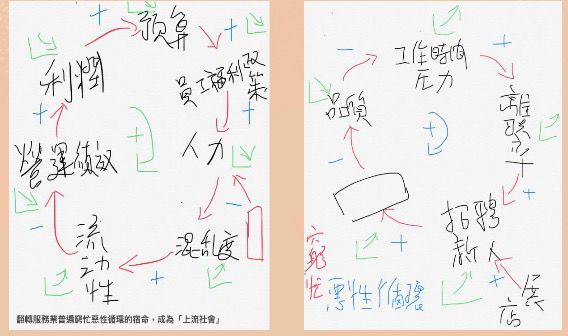 預算
+
+
利潤
員工福利政策
+
+
+
人力
營運績效
-
-
-
流動性
混亂度
+
翻轉服務業普遍窮忙惡性循環的宿命，成為「上流社會」
工作時間
壓力
-
+
品質
離職
+
+
-
+
招聘
新人
+
+
窮忙
惡性循環
展店